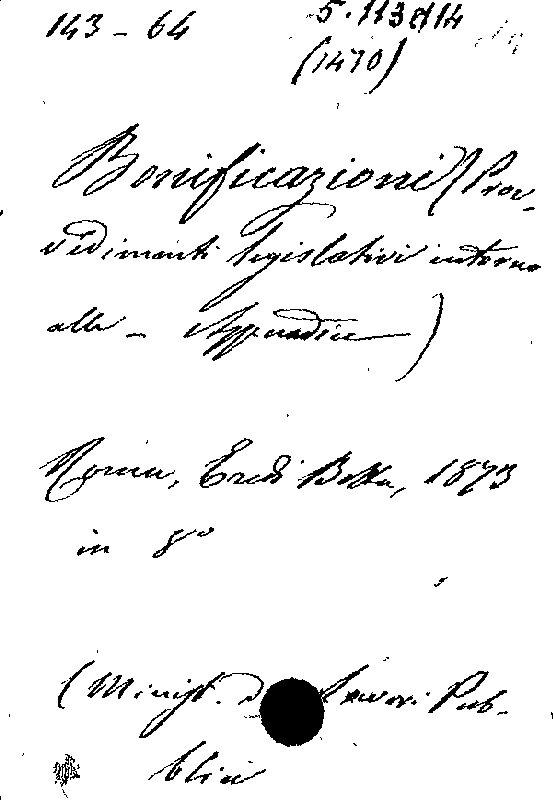 143 - 64 5.113 d 14
(1470)
Bonificazioni (Prov-
vedimenti legislativi intorno
alle - Appendice)
Roma, Eredi Botta, 1873
in 8º
(Minist. d Lavori Pub-
blici